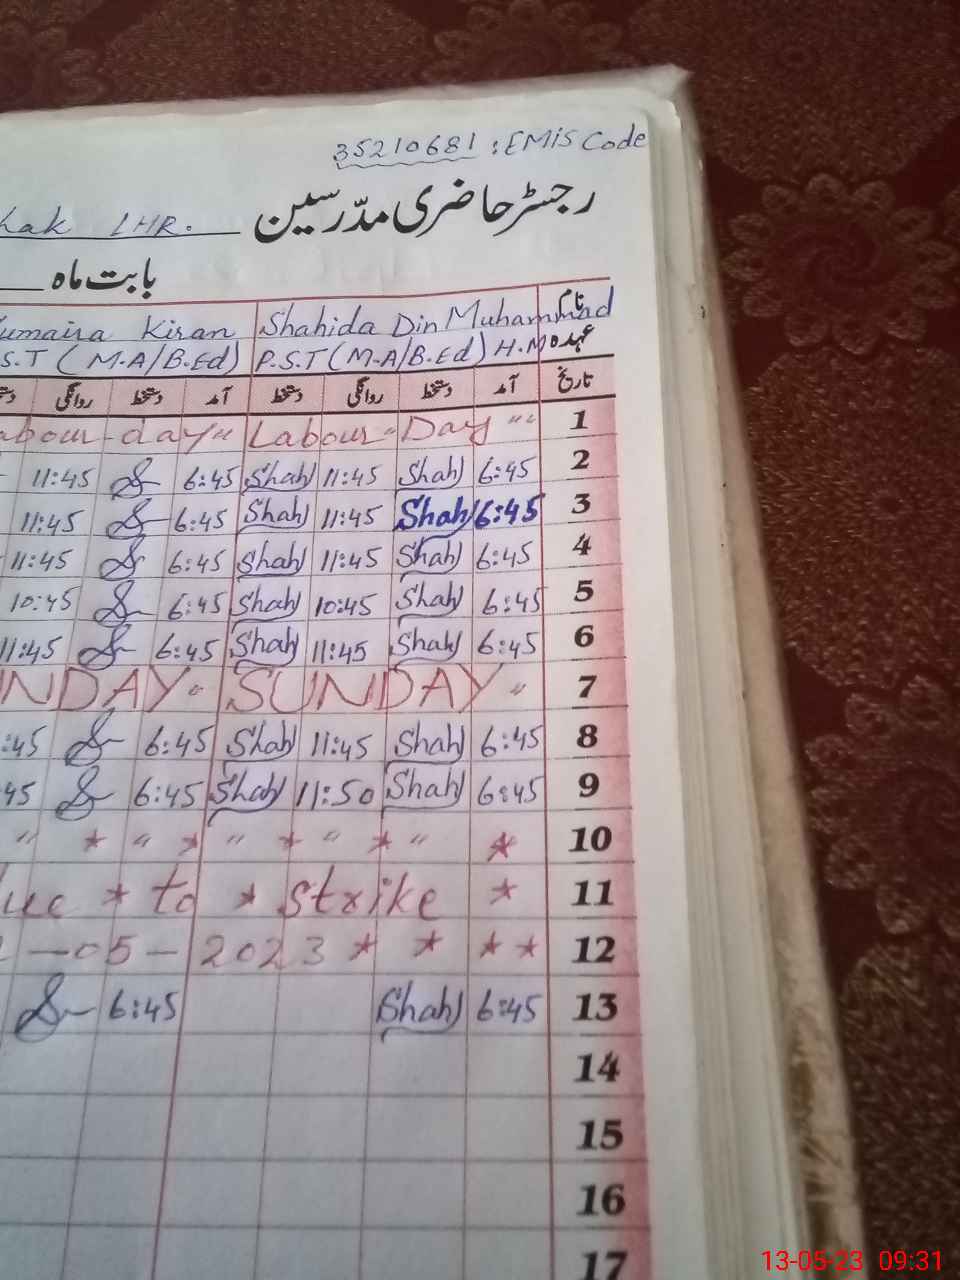 35210681 : EMIS Code
رجسٹر حاضری مدرسین
LHR.
بابت ماہ
نام Shahida Din Muhammad Kiran
عہدہ P.S.T (M.A/B.Ed) H.M S.T (M.A/B.Ed)
تاریخ آمد دستخط روانگی دستخط آمد دستخط روانگی
1 Labour - Day " " abour - day " "
2 6:45 Shah 11:45 Shah 6:45 11:45
3 6:45 Shah 11:45 Shah 6:45 11:45
4 6:45 Shah 11:45 Shah 6:45 11:45
5 6:45 Shah 10:45 Shah 6:45 10:45
6 6:45 Shah 11:45 Shah 6:45 11:45
7 SUNDAY " NDAY "
8 6:45 Shah 11:45 Shah 6:45 :45
9 6:45 Shah 11:50 Shah 6:45 45
10 " * " * " * " * "
11 * to * strike *
12 -05-2023 * * * *
13 6:45 Shah 6:45
14
15
16
17
13-05-23 09:31